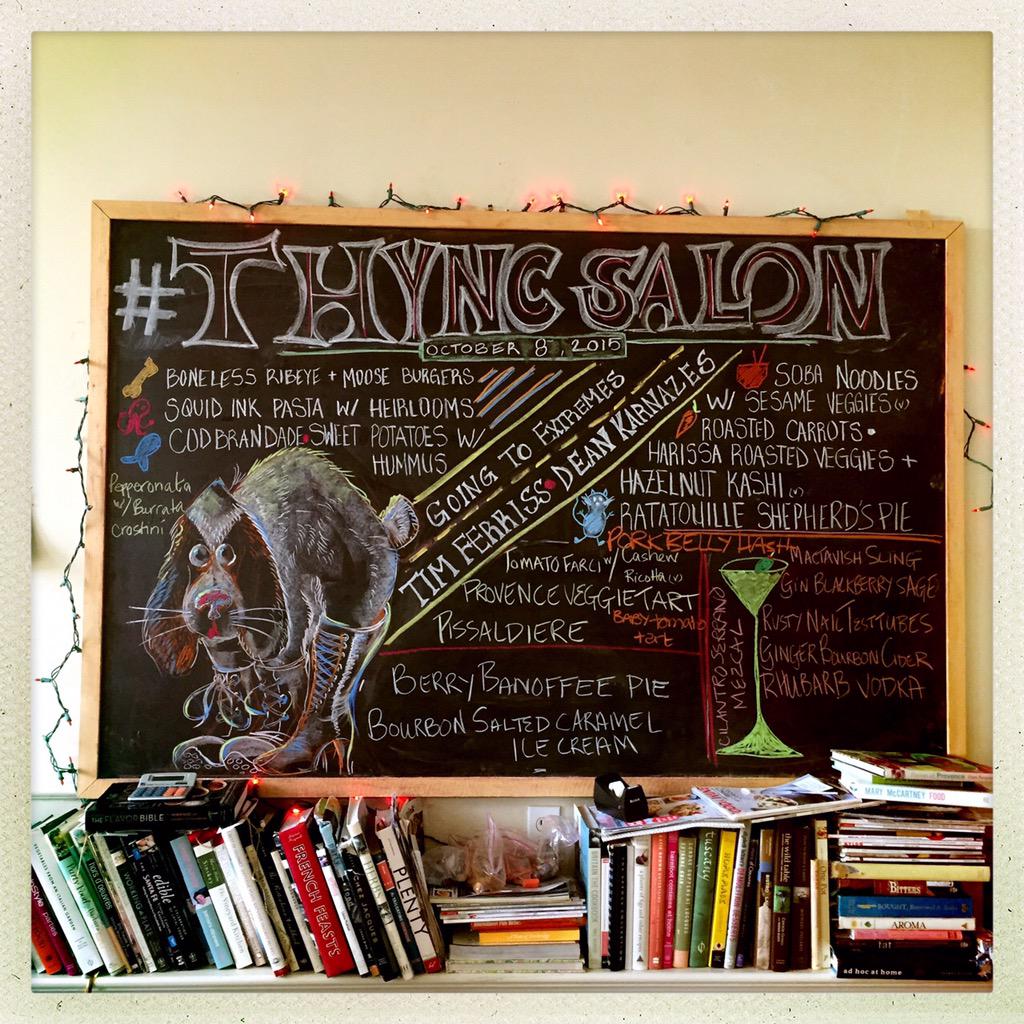 #THYNC SALON
OCTOBER 8, 2015
BONELESS RIBEYE + MOOSE BURGERS
SQUID INK PASTA W/ HEIRLOOMS
COD BRANDADE • SWEET POTATOES W/
HUMMUS
Pepperonata
w/ Burrata
Crostini
GOING TO EXTREMES
TIM FERRISS • DEAN KARNAZES
SOBA NOODLES
W/ SESAME VEGGIES (v)
ROASTED CARROTS •
HARISSA ROASTED VEGGIES +
HAZELNUT KASHI (v)
RATATOUILLE SHEPHERD'S PIE
PORK BELLY HASH
TOMATO FARCI w/ Cashew
Ricotta (v)
PROVENCE VEGGIE TART
BABY tomato
tart
PISSALDIERE
BERRY BANOFFEE PIE
BOURBON SALTED CARAMEL
ICE CREAM
CILANTRO SERRANO
MEZCAL
MACTAVISH SLING
GIN BLACKBERRY SAGE
RUSTY NAIL TEST TUBES
GINGER BOURBON CIDER
RHUBARB VODKA
THE FLAVOR BIBLE
edible
FRENCH FEASTS
PLENTY
TUSCANY
HOMEMADE
the wild table
MARY McCARTNEY FOOD
BITTERS
AROMA
fat
ad hoc at home